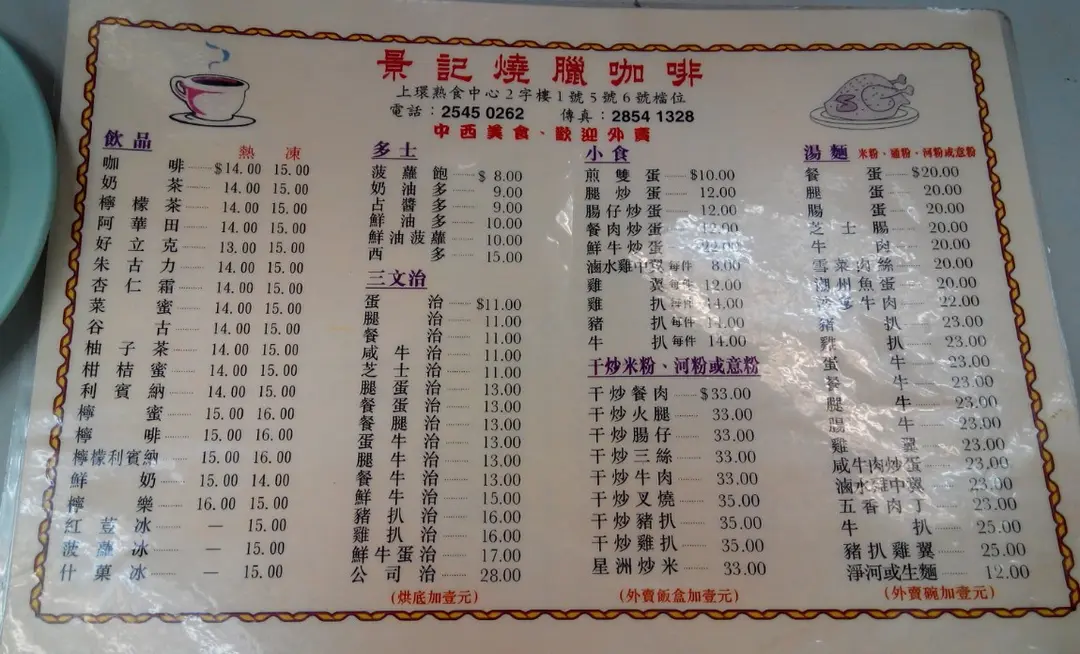 景記燒臘咖啡
上環熟食中心2字樓1號5號6號檔位
電話：2545 0262 傳真：2854 1328
中西美食、歡迎外賣
飲品
熱 凍
咖啡 $14.00 15.00
奶茶 14.00 15.00
檸檬茶 14.00 15.00
阿華田 14.00 15.00
好立克 13.00 15.00
朱古力 14.00 15.00
杏仁霜 14.00 15.00
菜蜜 14.00 15.00
谷古 14.00 15.00
柚子茶 14.00 15.00
柑桔蜜 14.00 15.00
利賓納 14.00 15.00
檸蜜 15.00 16.00
檸啡 15.00 16.00
檸檬利賓納 15.00 16.00
鮮奶 15.00 14.00
檸樂 16.00 15.00
紅荳冰 — 15.00
菠蘿冰 — 15.00
什菓冰 — 15.00
多士
菠蘿飽 $ 8.00
奶油多 9.00
占醬多 9.00
鮮油多 10.00
鮮油菠蘿 10.00
西多 15.00
三文治
蛋治 $11.00
腿治 11.00
餐治 11.00
咸牛治 11.00
芝士治 11.00
腿蛋治 13.00
餐蛋治 13.00
餐腿治 13.00
蛋牛治 13.00
腿牛治 13.00
餐牛治 13.00
鮮牛治 15.00
豬扒治 16.00
雞扒治 16.00
鮮牛蛋治 17.00
公司治 28.00
(烘底加壹元)
小食
煎雙蛋 $10.00
腿炒蛋 12.00
腸仔炒蛋 12.00
餐肉炒蛋 12.00
鮮牛炒蛋 22.00
滷水雞中翼 每件 8.00
雞翼 每件 12.00
雞扒 每件 14.00
豬扒 每件 14.00
牛扒 每件 14.00
干炒米粉、河粉或意粉
干炒餐肉 $33.00
干炒火腿 33.00
干炒腸仔 33.00
干炒三絲 33.00
干炒牛肉 33.00
干炒叉燒 35.00
干炒豬扒 35.00
干炒雞扒 35.00
星洲炒米 33.00
(外賣飯盒加壹元)
湯麵 米粉、通粉、河粉或意粉
餐蛋 $20.00
腿蛋 20.00
腸蛋 20.00
芝士腸 20.00
牛肉 20.00
雪菜肉絲 20.00
潮州魚蛋 20.00
牛肉 22.00
豬扒 23.00
雞扒 23.00
蛋牛 23.00
餐牛 23.00
腿牛 23.00
腸牛 23.00
雞翼 23.00
咸牛肉炒蛋 23.00
滷水雞中翼 23.00
五香肉丁 23.00
牛扒 25.00
豬扒雞翼 25.00
淨河或生麵 12.00
(外賣碗加壹元)